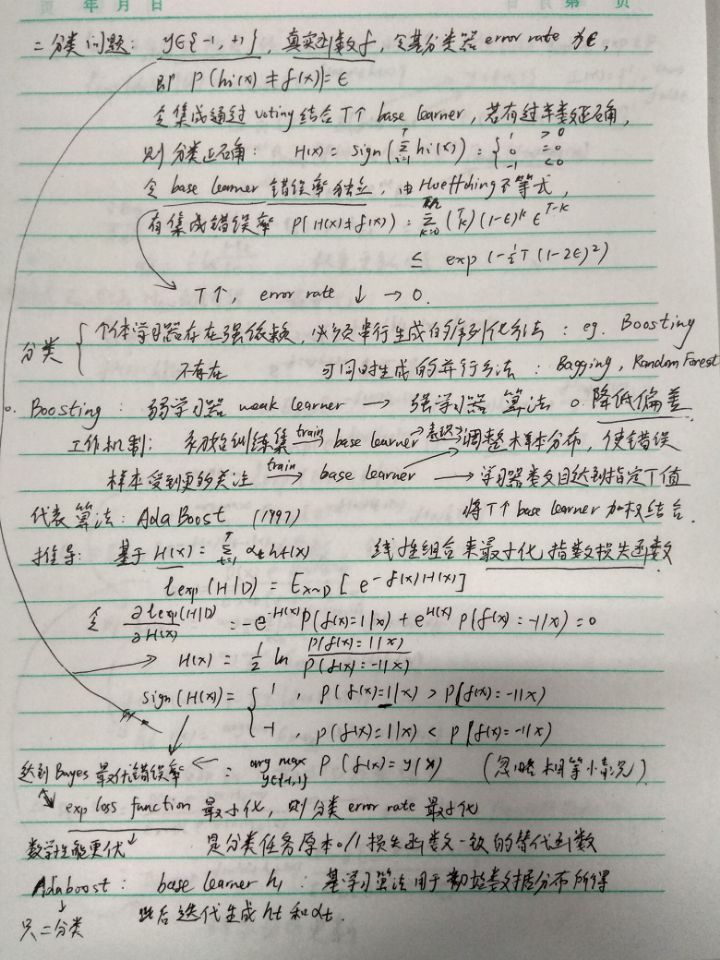 年 月 日 第 页
二分类问题: y∈{-1, +1}, 真实函数f, 令基分类器 error rate 为ϵ,
即 P(hi(x) ≠ f(x)) = ϵ
令集成通过 voting 结合 T个 base learner, 若有过半数正确,
则分类正确: H(x) = sign(∑_{i=1}^{T} hi(x)) = { 1 >0, 0 =0, -1 <0
令 base learner 错误率独立, 由Hoeffding不等式,
有集成错误率 P(H(x)≠f(x)) = ∑_{k=0} (T k) (1-ϵ)^k ϵ^{T-k}
≤ exp(-½T(1-2ϵ)²)
T↑, error rate ↓ → 0.
分类 { 个体学习器存在强依赖, 必须串行生成的序列化方法: eg. Boosting
不存在 可同时生成的并行方法: Bagging, Random Forest
。Boosting: 弱学习器 weak learner → 强学习器 算法 。降低偏差
工作机制: 初始训练集 train→ base learner 表现→ 调整样本分布, 使错误
样本受到更多关注 train→ base learner → 学习器数目达到指定T值
将T个base learner加权结合.
代表算法: AdaBoost (1997)
推导: 基于 H(x) = ∑_{t=1}^{T} αtht(x) 线性组合来最小化指数损失函数
lexp(H|D) = Ex~D [e^{-f(x)H(x)}]
令 ∂lexp(H|D)/∂H(x) = -e^{-H(x)}P(f(x)=1|x) + e^{H(x)} P(f(x)=-1|x) = 0
→ H(x) = ½ ln P(f(x)=1|x)/P(f(x)=-1|x)
sign(H(x)) = { 1, P(f(x)=1|x) > P(f(x)=-1|x)
-1, P(f(x)=1|x) < P(f(x)=-1|x)
达到Bayes最优错误率 ← = arg max y∈{-1,1} P(f(x)=y|x) (忽略相等情况)
exp loss function 最小化, 则分类 error rate 最小化
数学性能更优 是分类任务原本0/1损失函数一致的替代函数
Adaboost: base learner h1: 基学习算法用于初始数据分布所得
只二分类 此后迭代生成ht和αt.